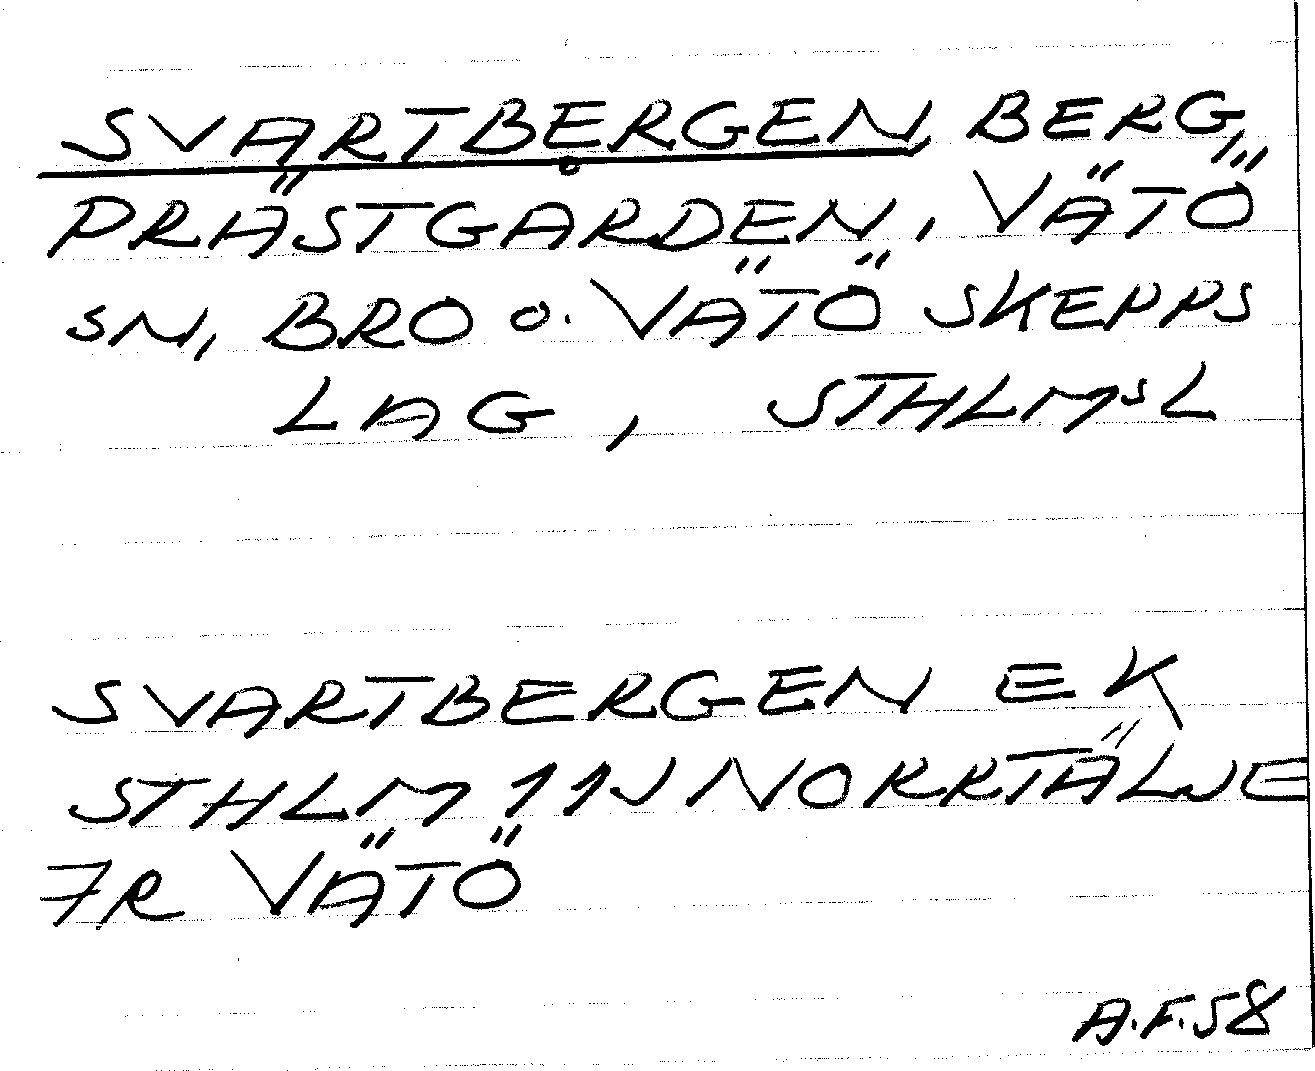 SVARTBERGEN, BERG,
PRÄSTGÅRDEN, VÄTÖ
SN, BRO O. VÄTÖ SKEPPS
LAG, STHLMSL
SVARTBERGEN EK
STHLM 11J NORRTÄLJE
7R VÄTÖ
A.F.58